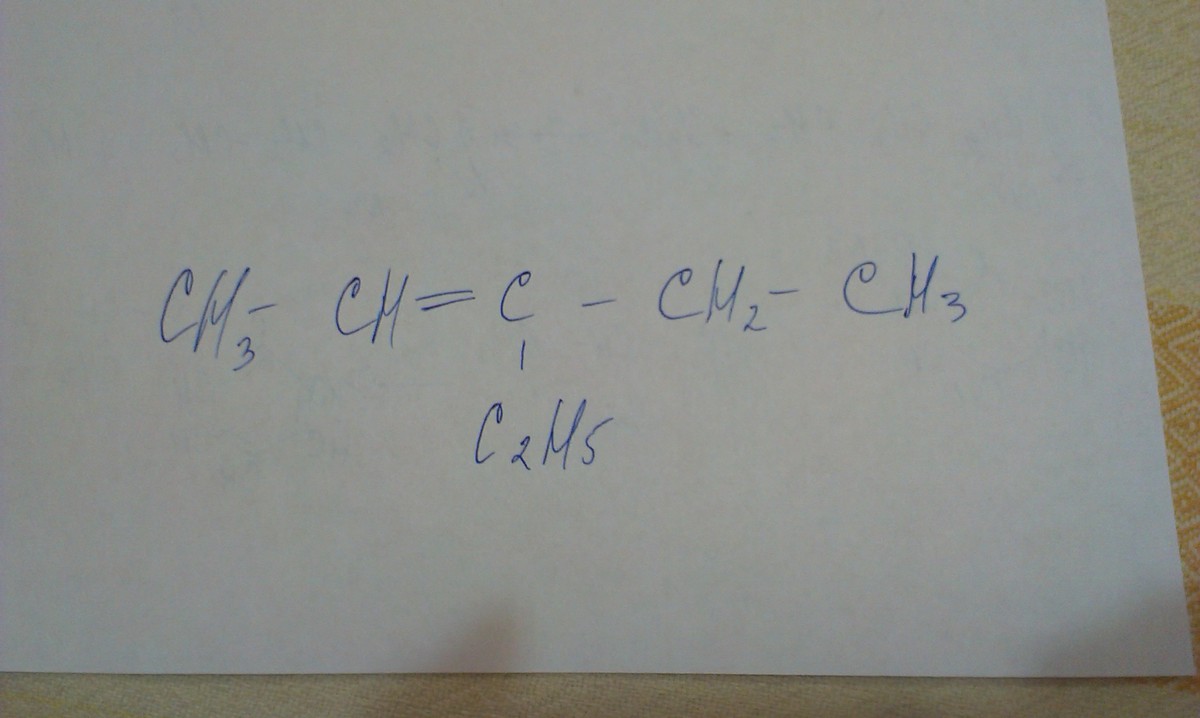 CH3 - CH = C - CH2 - CH3
|
C2H5